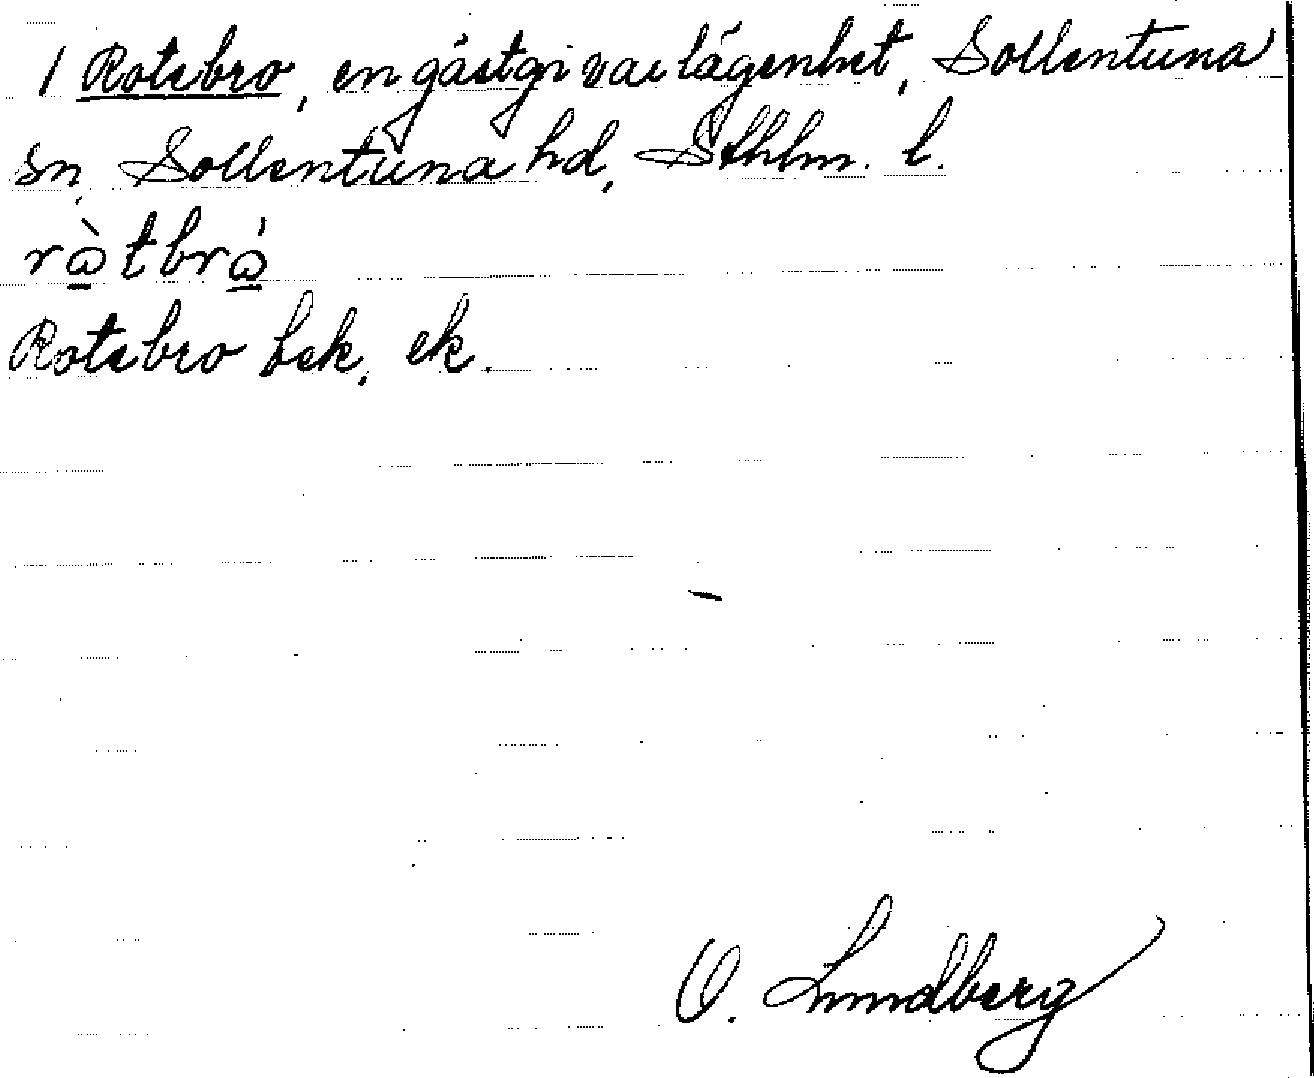 1 Rotebro, en gästgivarlägenhet, Sollentuna
sn, Sollentuna hd, Sthlm. l.
ròtbró
Rotebro bek, ek.
O. Lundberg